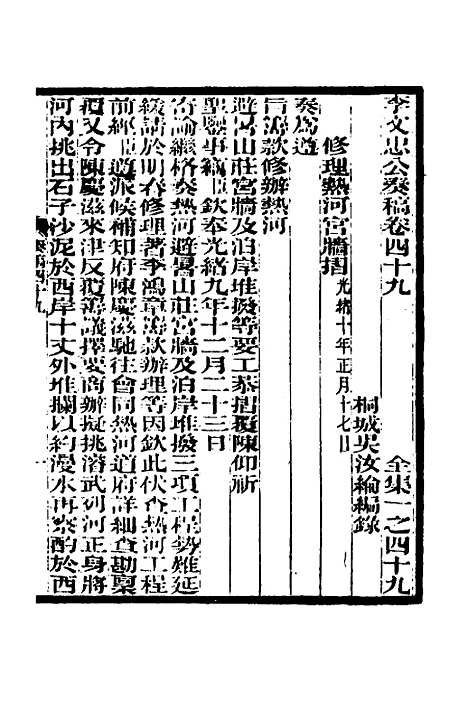 李文忠公奏稿卷四十九 全集一之四十九
桐城吳汝綸編錄
修理熱河宮牆摺 光緒十年正月十七日
奏為遵
旨籌款修辦熱河
避暑山莊宮牆及泊岸堆撥等要工恭摺覆陳仰祈
聖鑒事竊臣欽奉光緒九年十二月二十三日
寄諭繼格奏熱河避暑山莊宮牆及泊岸堆撥三項工程勢難延
緩請於明春修理著李鴻章籌款辦理等因欽此伏查熱河工程
前經臣遴派候補知府陳慶滋馳往會同熱河道府詳細查勘稟
覆又令陳慶滋來津反覆籌議擇要商辦擬挑濬武列河正身將
河內挑出石子沙泥於西岸十丈外堆攔以約漫水再察酌於西